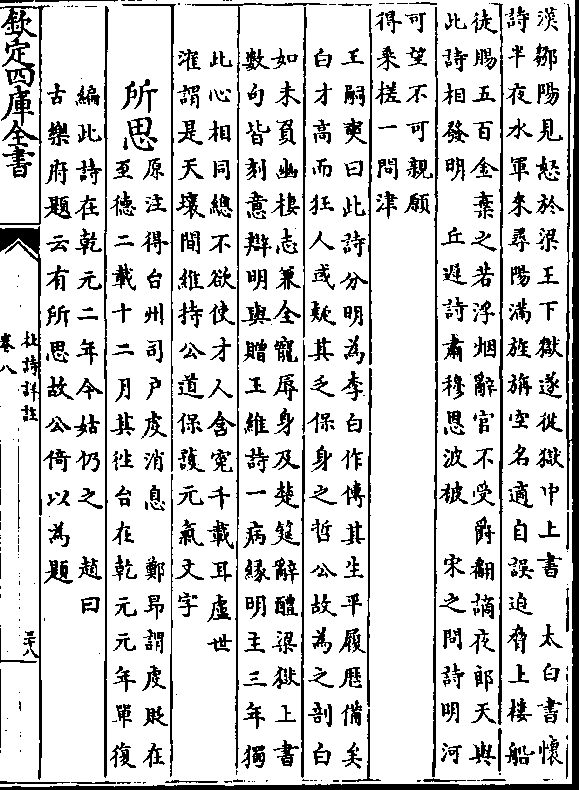 漢鄒陽見怒於梁王下獄遂從獄中上書　太白書懷
詩半夜水軍來尋陽滿旌旃空名適自誤迫脅上樓船
徒賜五百金棄之若浮烟辭官不受爵翻謫夜郎天與
此詩相發明　丘遲詩肅穆恩波被　宋之問詩明河
可望不可親願
得乘槎一問津
王嗣奭曰此詩分明為李白作傳其生平履歷備矣
白才高而狂人或疑其乏保身之哲公故為之剖白
如未負幽棲志兼全寵辱身及楚筵辭醴梁獄上書
數句皆刻意辯明與贈王維詩一病緣明主三年獨
此心相同總不欲使才人含寃千載耳盧世
㴶謂是天壤間維持公道保護元氣文字
所思
原注得台州司户䖍消息　鄭昂謂䖍貶在
至德二載十二月其徃台在乾元元年單復
編此詩在乾元二年今姑仍之　趙曰
古樂府題云有所思故公倚以為題
欽定四庫全書
杜詩詳註
卷八
三十八